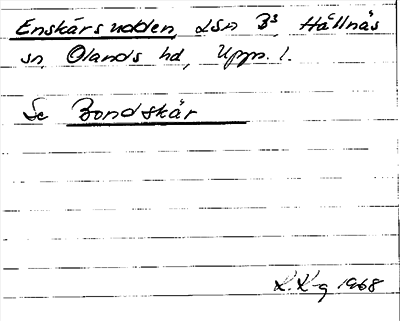 Enskärsudden, LSA B³, Hållnäs
sn, Olands hd, Uppn. l.
Se Bondskär
K.K-g 1968